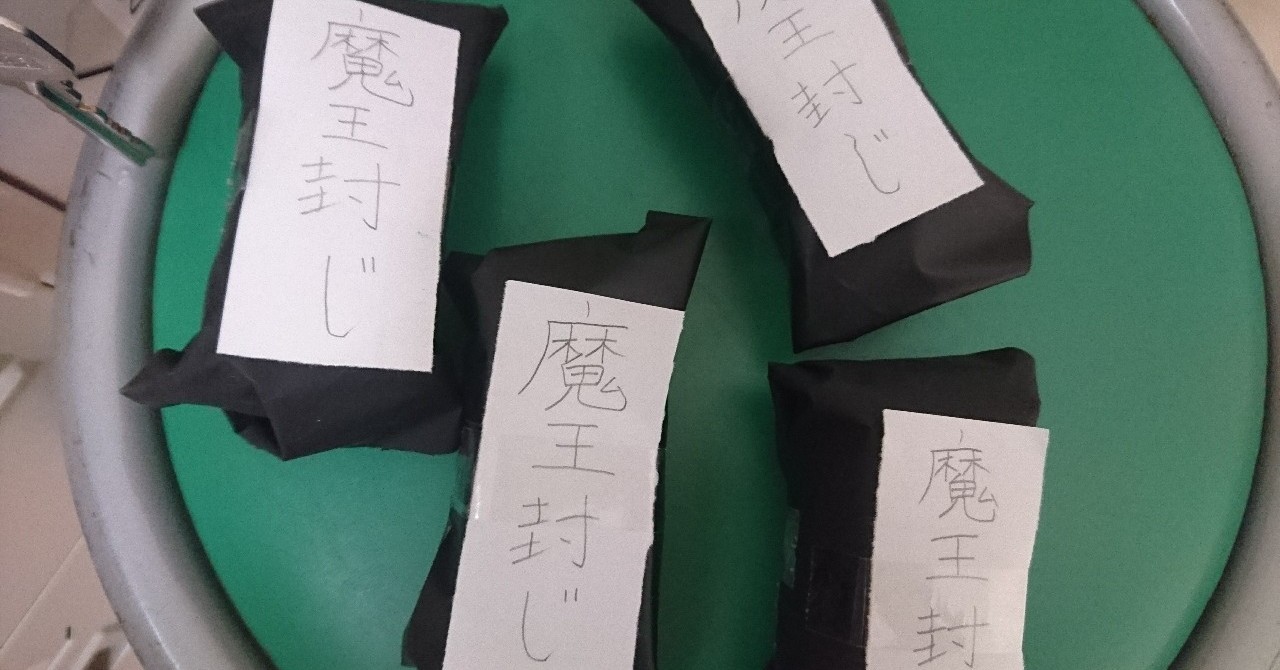 魔王封じ
魔王封じ
魔王封じ
魔王封